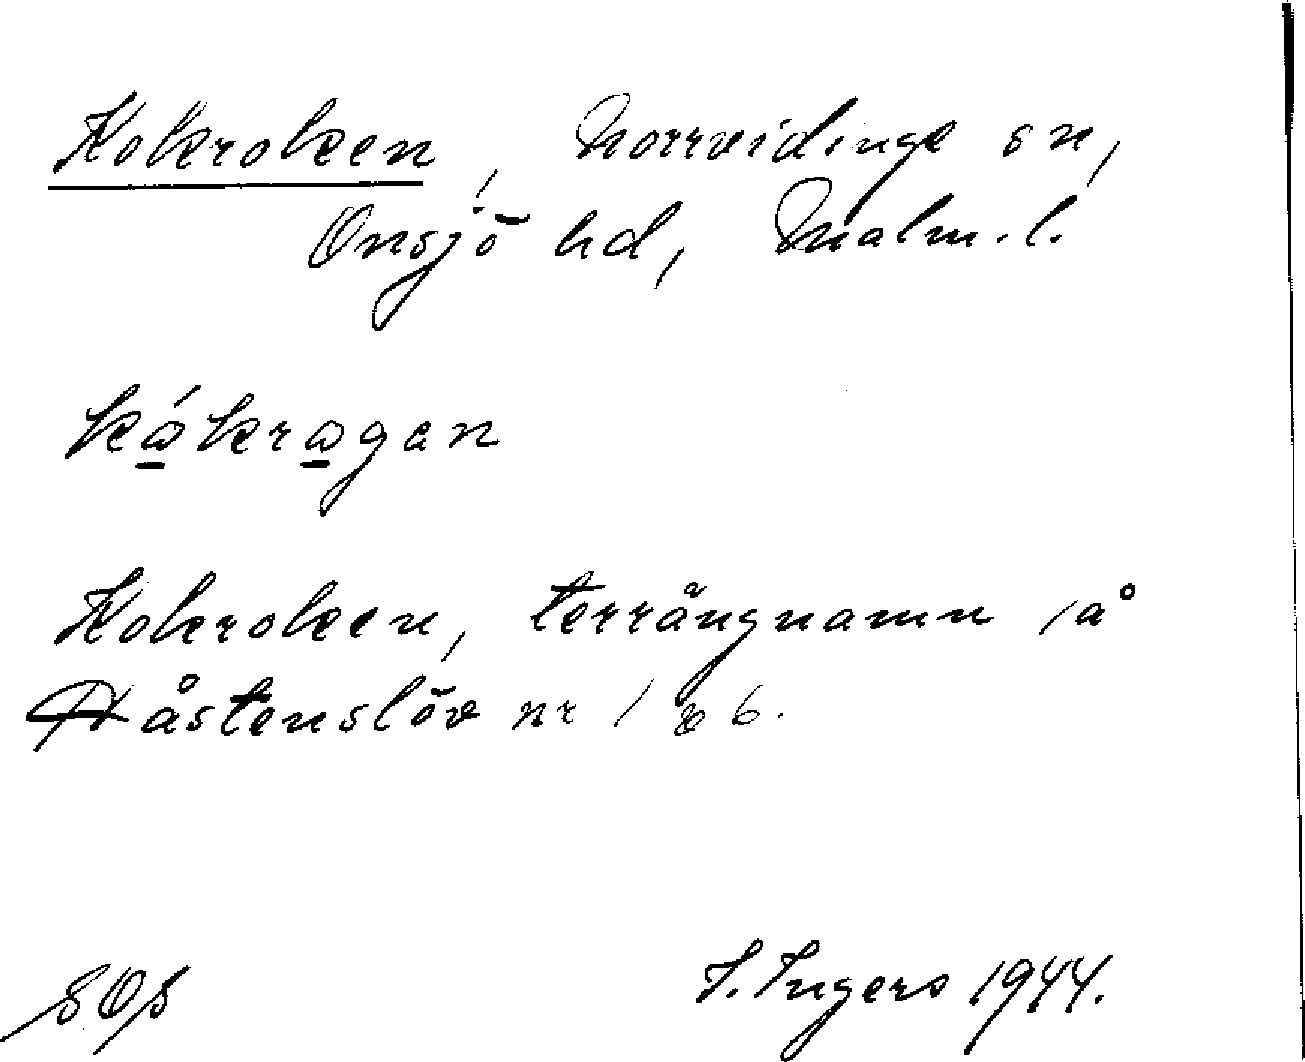 Kokroken, Norrvidinge sn,
Onsjö hd, Malm. l.
kókrogan
Kokroken, terrängnamn på
Håstenslöv nr 1 o 6.
I. Ingers 1944.